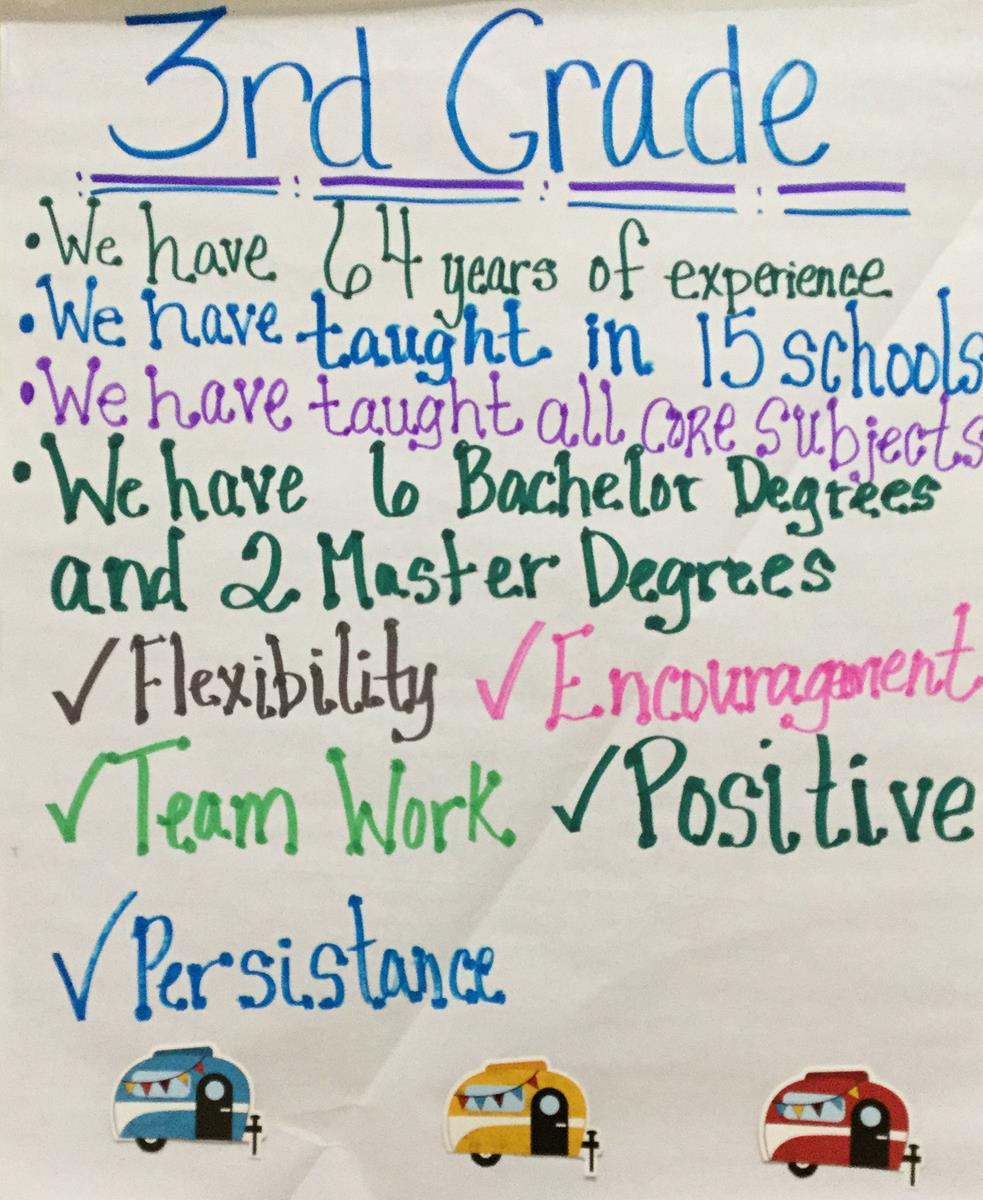 3rd Grade
• We have 64 years of experience
• We have taught in 15 schools
• We have taught all core subjects
• We have 6 Bachelor Degrees
and 2 Master Degrees
✓ Flexibility ✓ Encouragement
✓ Team Work ✓ Positive
✓ Persistance